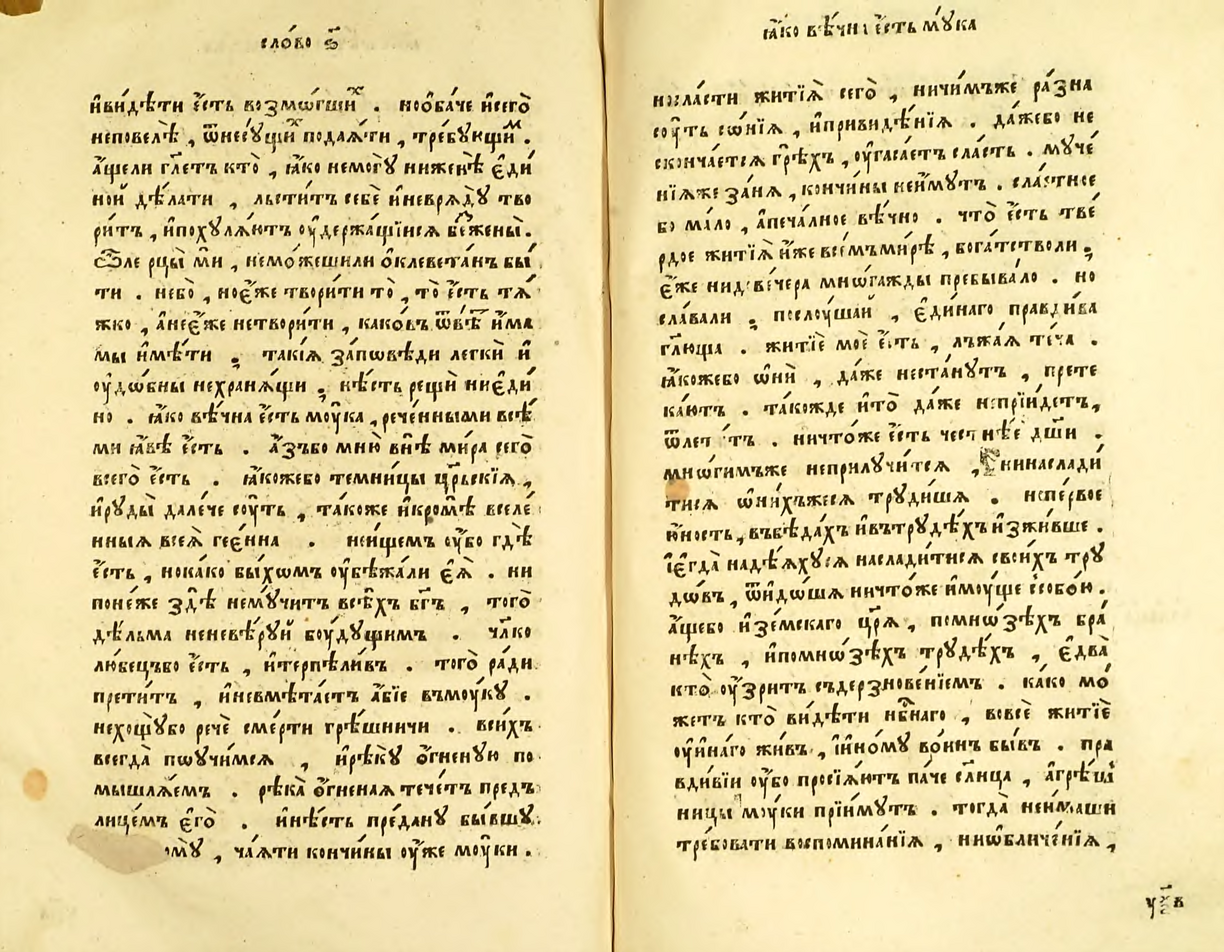 сло́во ѕ҃
и҆ви́дѣти є҆́сть возмѡ́гшиⷯ . нообаче и҆сегѡ̀
неповелѣ̀ , ѿнесꙋ́щиⷯ подаѧ́ти , требꙋющиⷨ .
а҆́щели гл҃етъ кто̀ , ꙗ҆́ко немогꙋ̀ ниженѣ̀ є҆ди
ной дѣ́лати , льсти́тъ себѐ и҆неврѧдꙋ̀ тво
ри́тъ , и҆похꙋлѧ́ютъ оу҆держа́щїисѧ бл҃же́ны .
Ѽле рцы́ ми , немо́жешили ѻ҆клевета́нъ бы́
ти . небо̀ , ноє҆́же твори́ти то̀ , то̀ є҆́сть тѧ́
жко , а҆неє҆́же нетвори́ти , како́въ ѿвѣ́ⷮ и҆́ма
мы и҆мѣ́ти ; такі́ѧ за́пѡвѣди легкѝ и҆
оу҆дѡ́бны нехранѧ́щи ; нѣ́сть рещѝ ниє҆ди́
но . ꙗ҆́ко вѣ́чна є҆́сть моу́ка , рече́нными всѣ́
ми ꙗ҆́вѣ є҆́сть . а҆́зъбо мню̀ внѣ̀ ми́ра сего̀
всего̀ є҆́сть . ꙗ҆́кожебо темни́цы цр҃ьскїѧ ,
и҆рꙋды̀ дале́че соу́ть , та́коже и҆кромѣ̀ вселе́
нныѧ всеѧ̀ гее́нна . неи҆́щемъ оу҆́бо гдѣ̀
є҆́сть , нокако бы́хомъ оу҆бѣжа́ли є҆ѧ̀ . ни
поне́же здѣ̀ немꙋ́читъ всѣ́хъ бг҃ъ , того̀
дѣ́льма неневѣ́рꙋй боу́дꙋщимъ . чл҃ко
лю́бецъбо є҆́сть , и҆терпѣли́въ . того̀ ра́ди
прети́тъ , и҆невмѣта́етъ а҆́бїе въмоу́кꙋ .
нехощꙋ́бо речѐ сме́рти грѣ́шничи . все́хъ
всегда̀ пѡꙋчи́мсѧ , и҆рѣ́кꙋ ѻ҆́гненꙋю по
мышлѧ́емъ . рѣка̀ ѻ҆́гненаѧ тече́тъ предъ
лице́мъ є҆го̀ . и҆нѣ́сть пре́данꙋ бы́вшꙋ
ча́ѧти кончи́ны оу҆́же моу́ки .
ꙗ҆́ко вѣ́чна є҆́сть мꙋ́ка
нисла́сти житїѧ̀ сего̀ , ничи́мъже ра́зна
соу́ть сѡ́нїѧ , и҆привидѣ́нїѧ . да́жебо не
сконча́етсѧ грѣ́хъ , оу҆гаса́етъ сла́сть . мꙋче́
нїѧже за́нѧ , кончи́ны неи҆́мꙋтъ . сла́стное
бо ма́ло , а҆печа́лное вѣ́чно . что̀ є҆́сть тве́
рдое житїѧ̀ и҆́же всемъми́рѣ , бога́тстволи ;
є҆́же нидове́чера мнѡ́гажды пребыва́ло . но
сла́вали ; послоу́шай , є҆ди́наго пра́вдива
гл҃юща . житїѐ моѐ є҆́сть , лъжа́ѧ теча̀ .
ꙗ҆́кожебо ѡ҆нѝ , да́же неста́нꙋтъ , прете
ка́ютъ . та́кожде и҆то̀ да́же непрїи́детъ ,
ѿлета́тъ . ничто́же є҆́сть честнѣ́е дш҃и .
мнѡ́гимъже неприлꙋчи́тсѧ , нинаслади́
тисѧ ѡ҆ни́хъжесѧ трꙋди́шѧ . не́первое
ю҆́ность , въбѣда́хъ и҆вътрꙋдѣ́хъ и҆зжи́вше .
і҆є҆гда̀ надѣ́ѧхꙋсѧ наслади́тисѧ свои́хъ трꙋ
дѡ́въ , ѿидѡ́шѧ ничто́же и҆моу́ще ссобо́ю .
а҆́щебо и҆зе́мскаго цр҃ѧ̀ , помнѡ́зѣхъ бра́
нѣхъ , и҆помнѡ́зѣхъ трꙋдѣ́хъ , є҆два̀
кто̀ оу҆́зритъ съдерзнове́нїемъ . ка́ко мо́
жетъ кто̀ ви́дѣти нб҃наго , вовсѐ житїѐ
оу҆и҆на́го жи́въ , і҆и҆но́мꙋ во́инъ бы́въ . пра́
вдивїи оу҆́бо просїѧ́ютъ па́че сл҃нца , а҆грѣ́ш
ницы моу́ки прїи́мꙋтъ . тогда̀ неи҆́маши
тре́бовати воспомина́нїѧ , ниѡ҆бличе́нїѧ ,